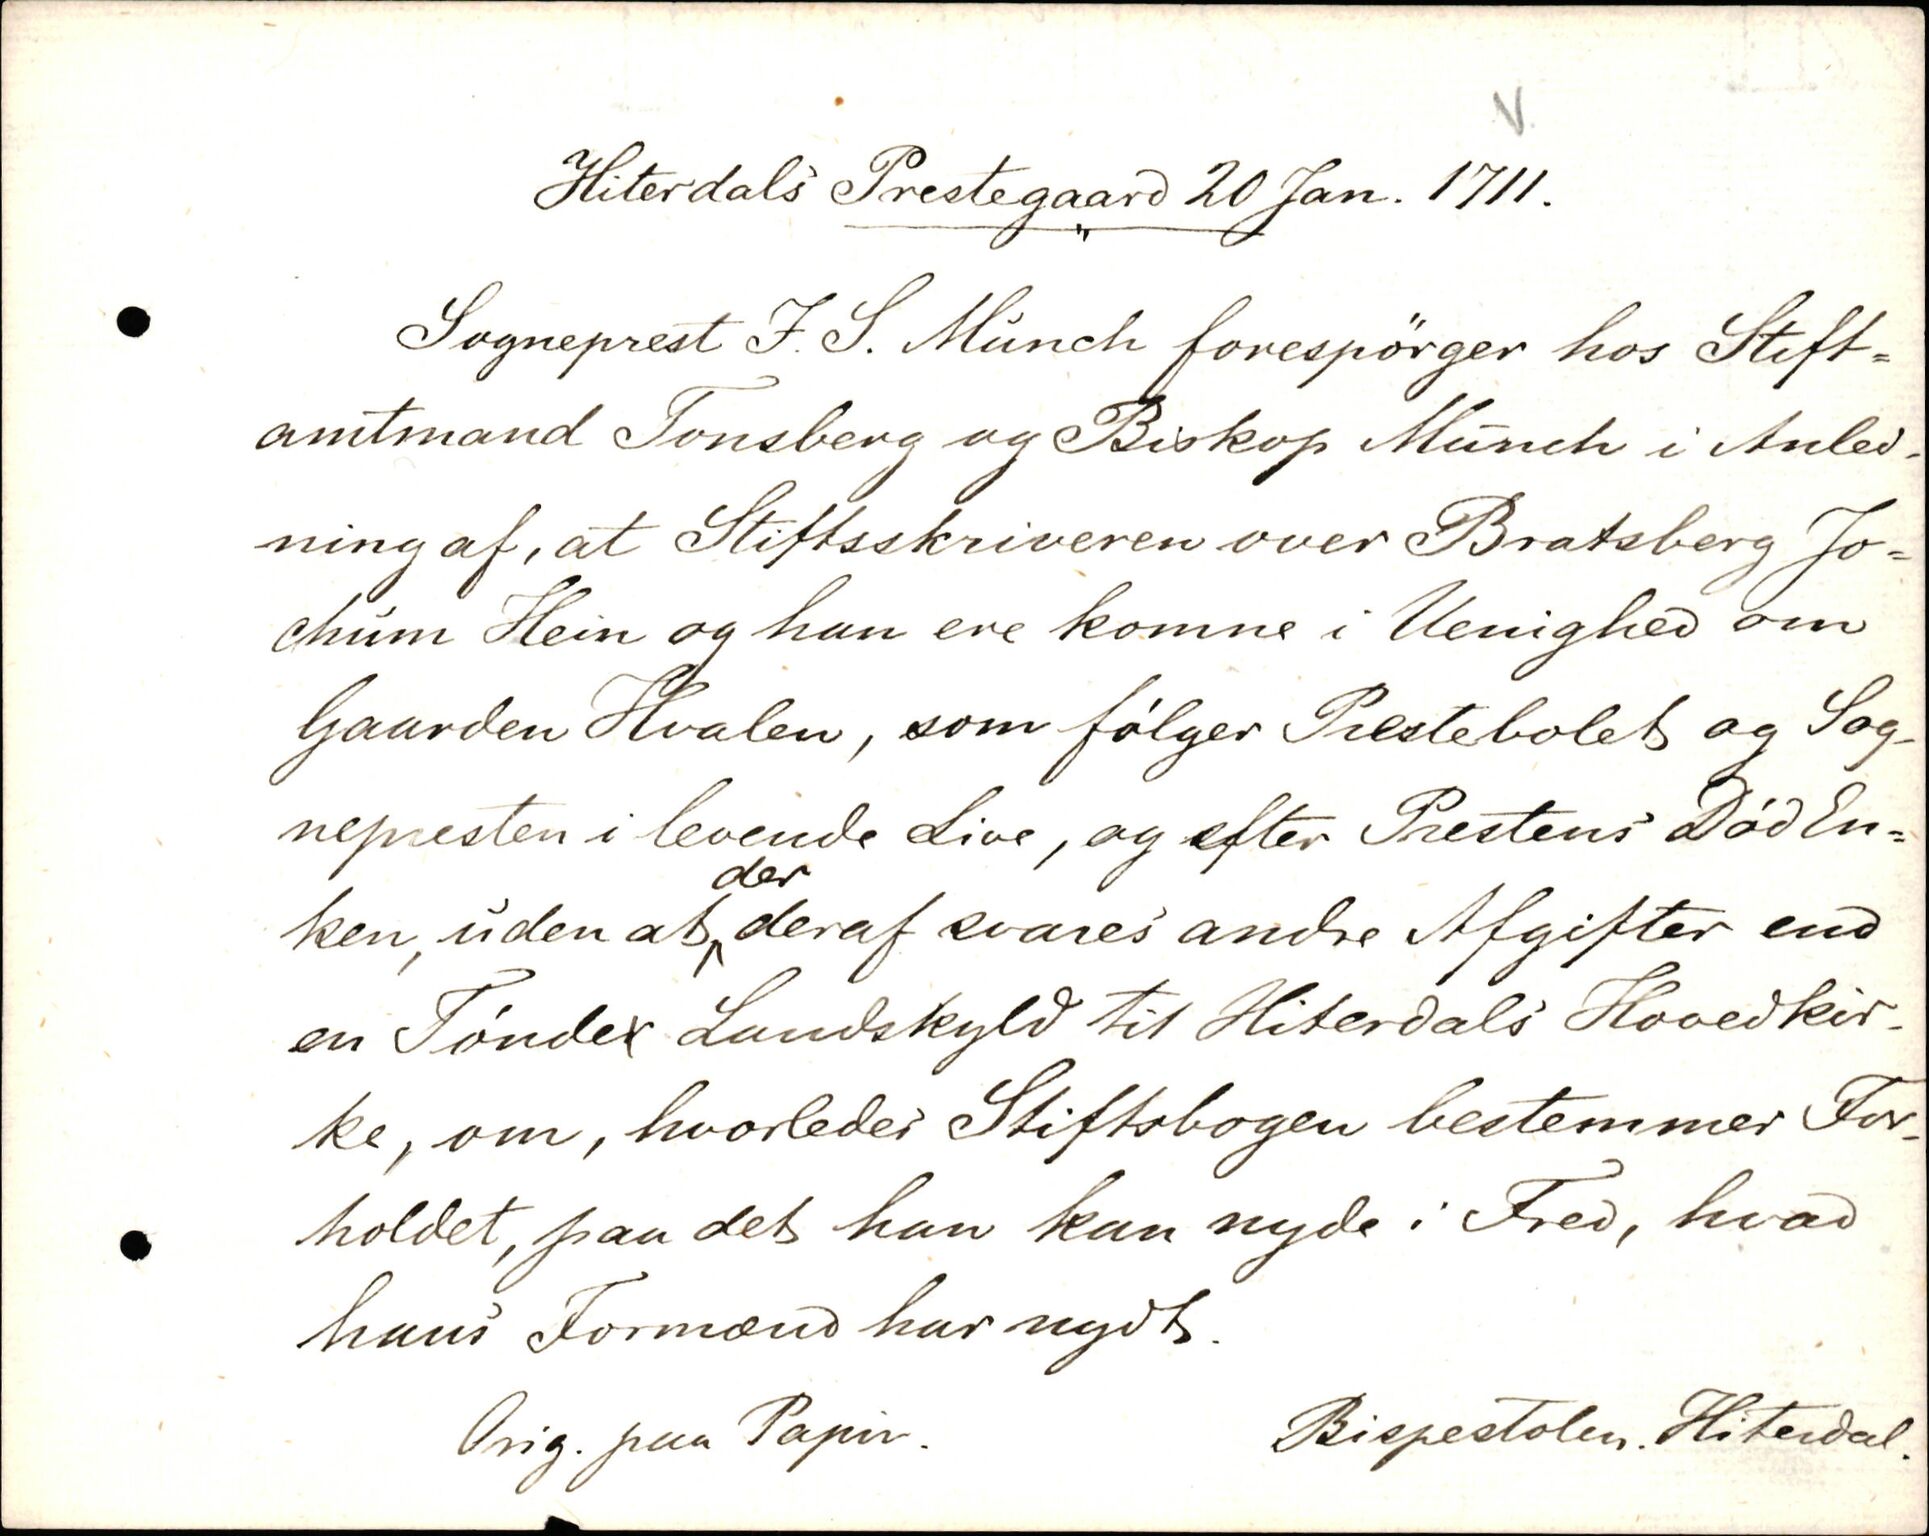 V.
Hiterdals Prestegaard 20 Jan. 1711.
Sogneprest F. S. Munch forespörger hos Stift=
amtmand Tonsberg og Biskop Munch i Anled-
ning af, at Stiftsskriveren over Bratsberg Jo=
chum Hein og han ere komne i Uenighed om
Gaarden Hvalen, som følger Prestebolet og Sog-
nepresten i levende Live, og efter Prestens Død En=
ken, uden at der deraf svares andre Afgifter end
en Tønde Landskyld til Hiterdals Hovedkir-
ke, om, hvorledes Stiftsbogen bestemmer For-
holdet, paa det han kan nyde i Fred, hvad
hans Formænd har nydt.
Orig. paa Papir. Bispestolen. Hiterdal.